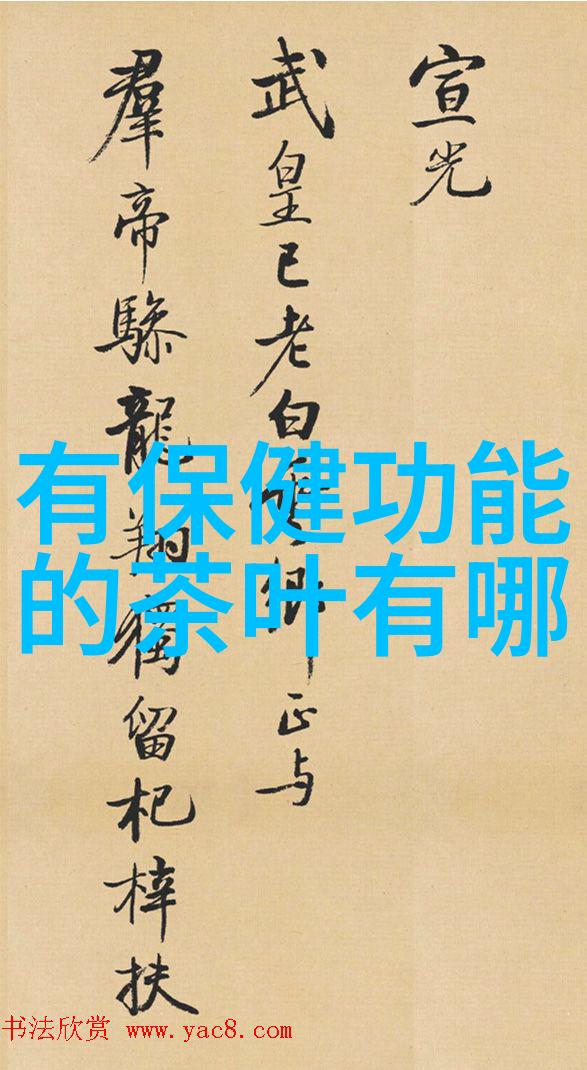 宣光
武皇已老白雲鄉正与
羣帝驂龍翔獨留杞梓扶
有保健功能
的茶叶有哪
书法欣赏 www.yac8.com